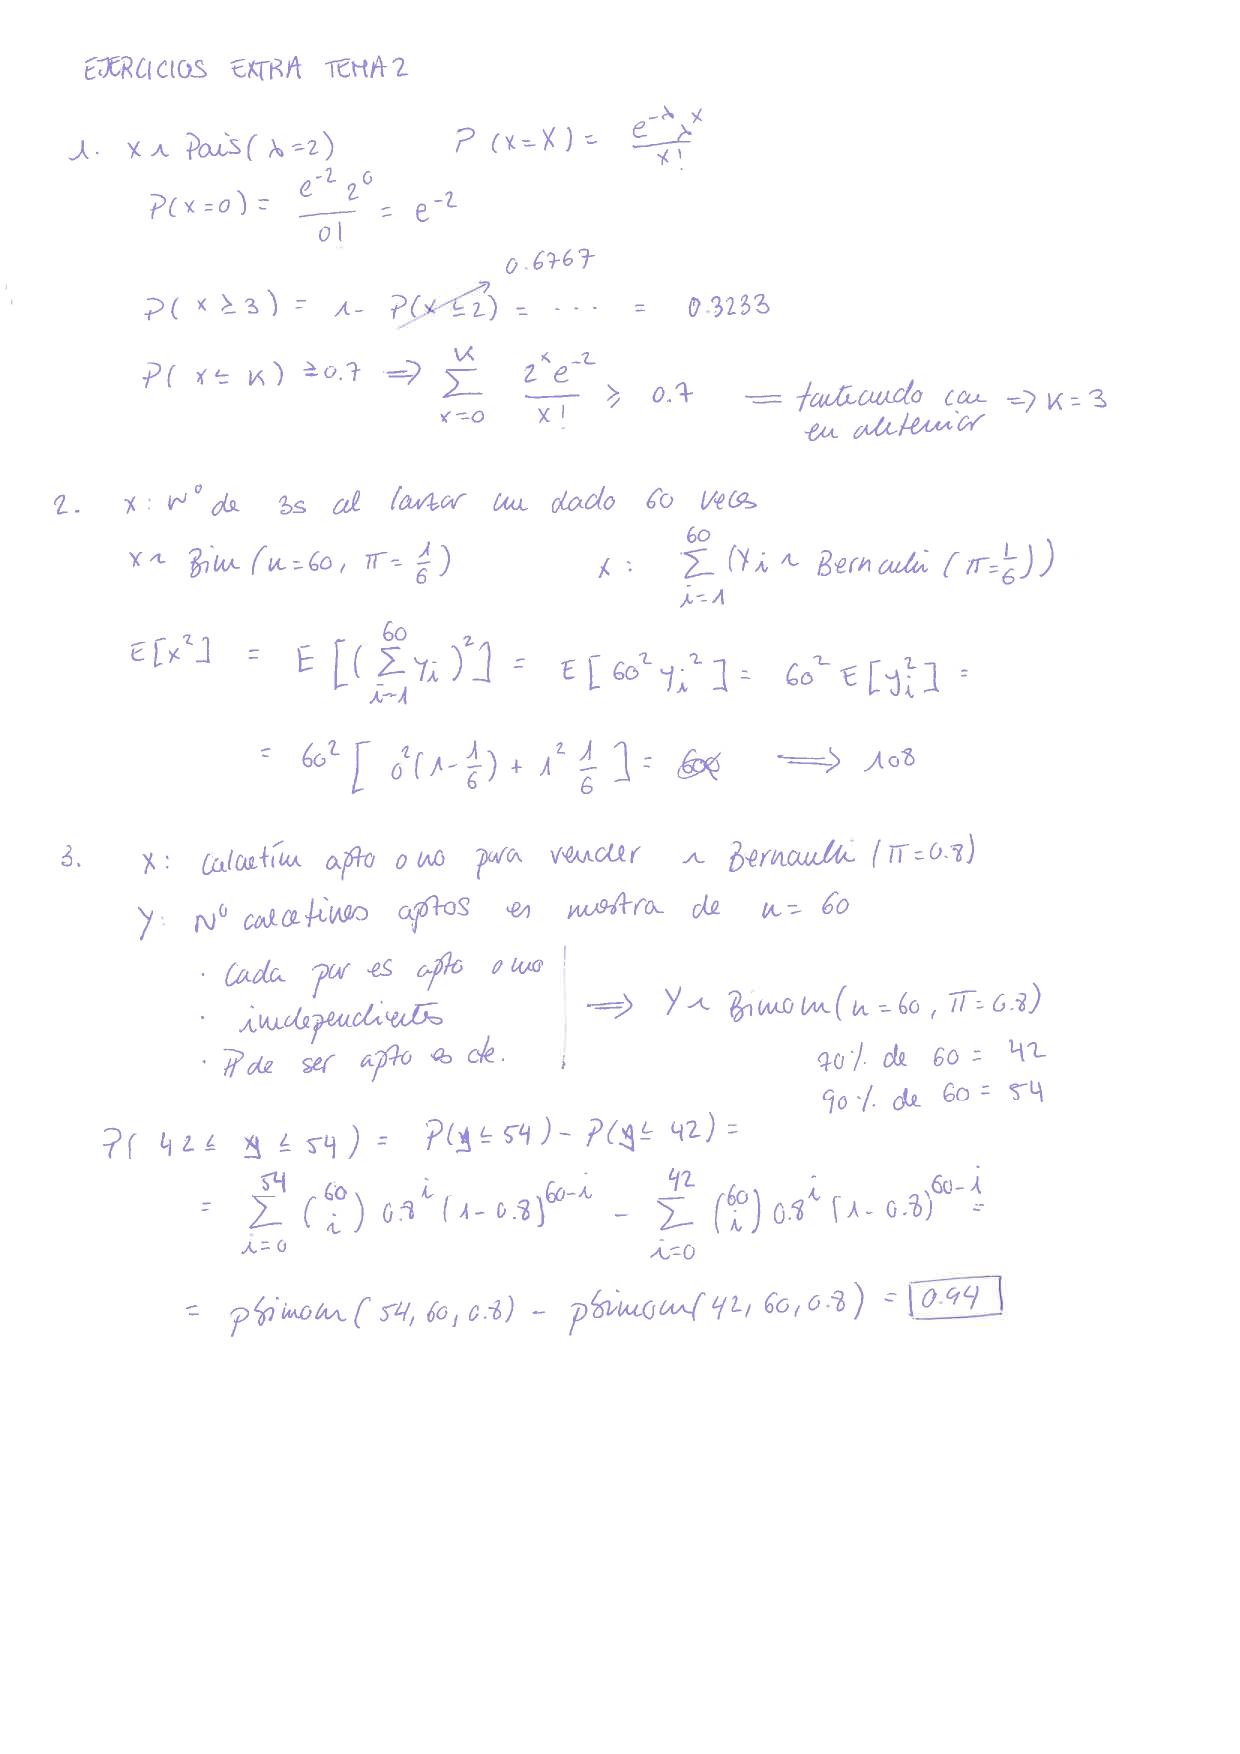 EJERCICIOS EXTRA TEMA 2
1. X ~ Pois(λ=2) P(x=X) = e^-λ λ^x / x!
P(x=0) = e^-2 2^0 / 0! = e^-2
0.6767
P(x≥3) = 1- P(x≤2) = ... = 0.3233
P(x≤K) ≥0.7 => Σ_{x=0}^{K} 2^x e^-2 / x! ≥ 0.7 = tanteando con => K=3
en anterior
2. X: Nº de 3s al lanzar un dado 60 veces
X ~ Bin(n=60, π=1/6) X: Σ_{i=1}^{60} (Yi ~ Bernoulli (π=1/6))
E[x²] = E[(Σ_{i=1}^{60} yi)²] = E[60² yi²] = 60² E[yi²] =
= 60² [0²(1-1/6) + 1² 1/6] = 600 => 108
3. X: Calcetín apto o no para vender ~ Bernoulli (π=0.8)
Y: Nº calcetines aptos en mostra de n=60
· Cada par es apto o no
· independientes => Y ~ Binom(n=60, π=0.8)
· P de ser apto es cte. 70% de 60 = 42
90% de 60 = 54
P(42 ≤ y ≤ 54) = P(y≤54) - P(y≤42) =
= Σ_{i=0}^{54} (60 i) 0.8^i (1-0.8)^{60-i} - Σ_{i=0}^{42} (60 i) 0.8^i (1-0.8)^{60-i} =
= pbinom(54, 60, 0.8) - pbinom(42, 60, 0.8) = 0.94